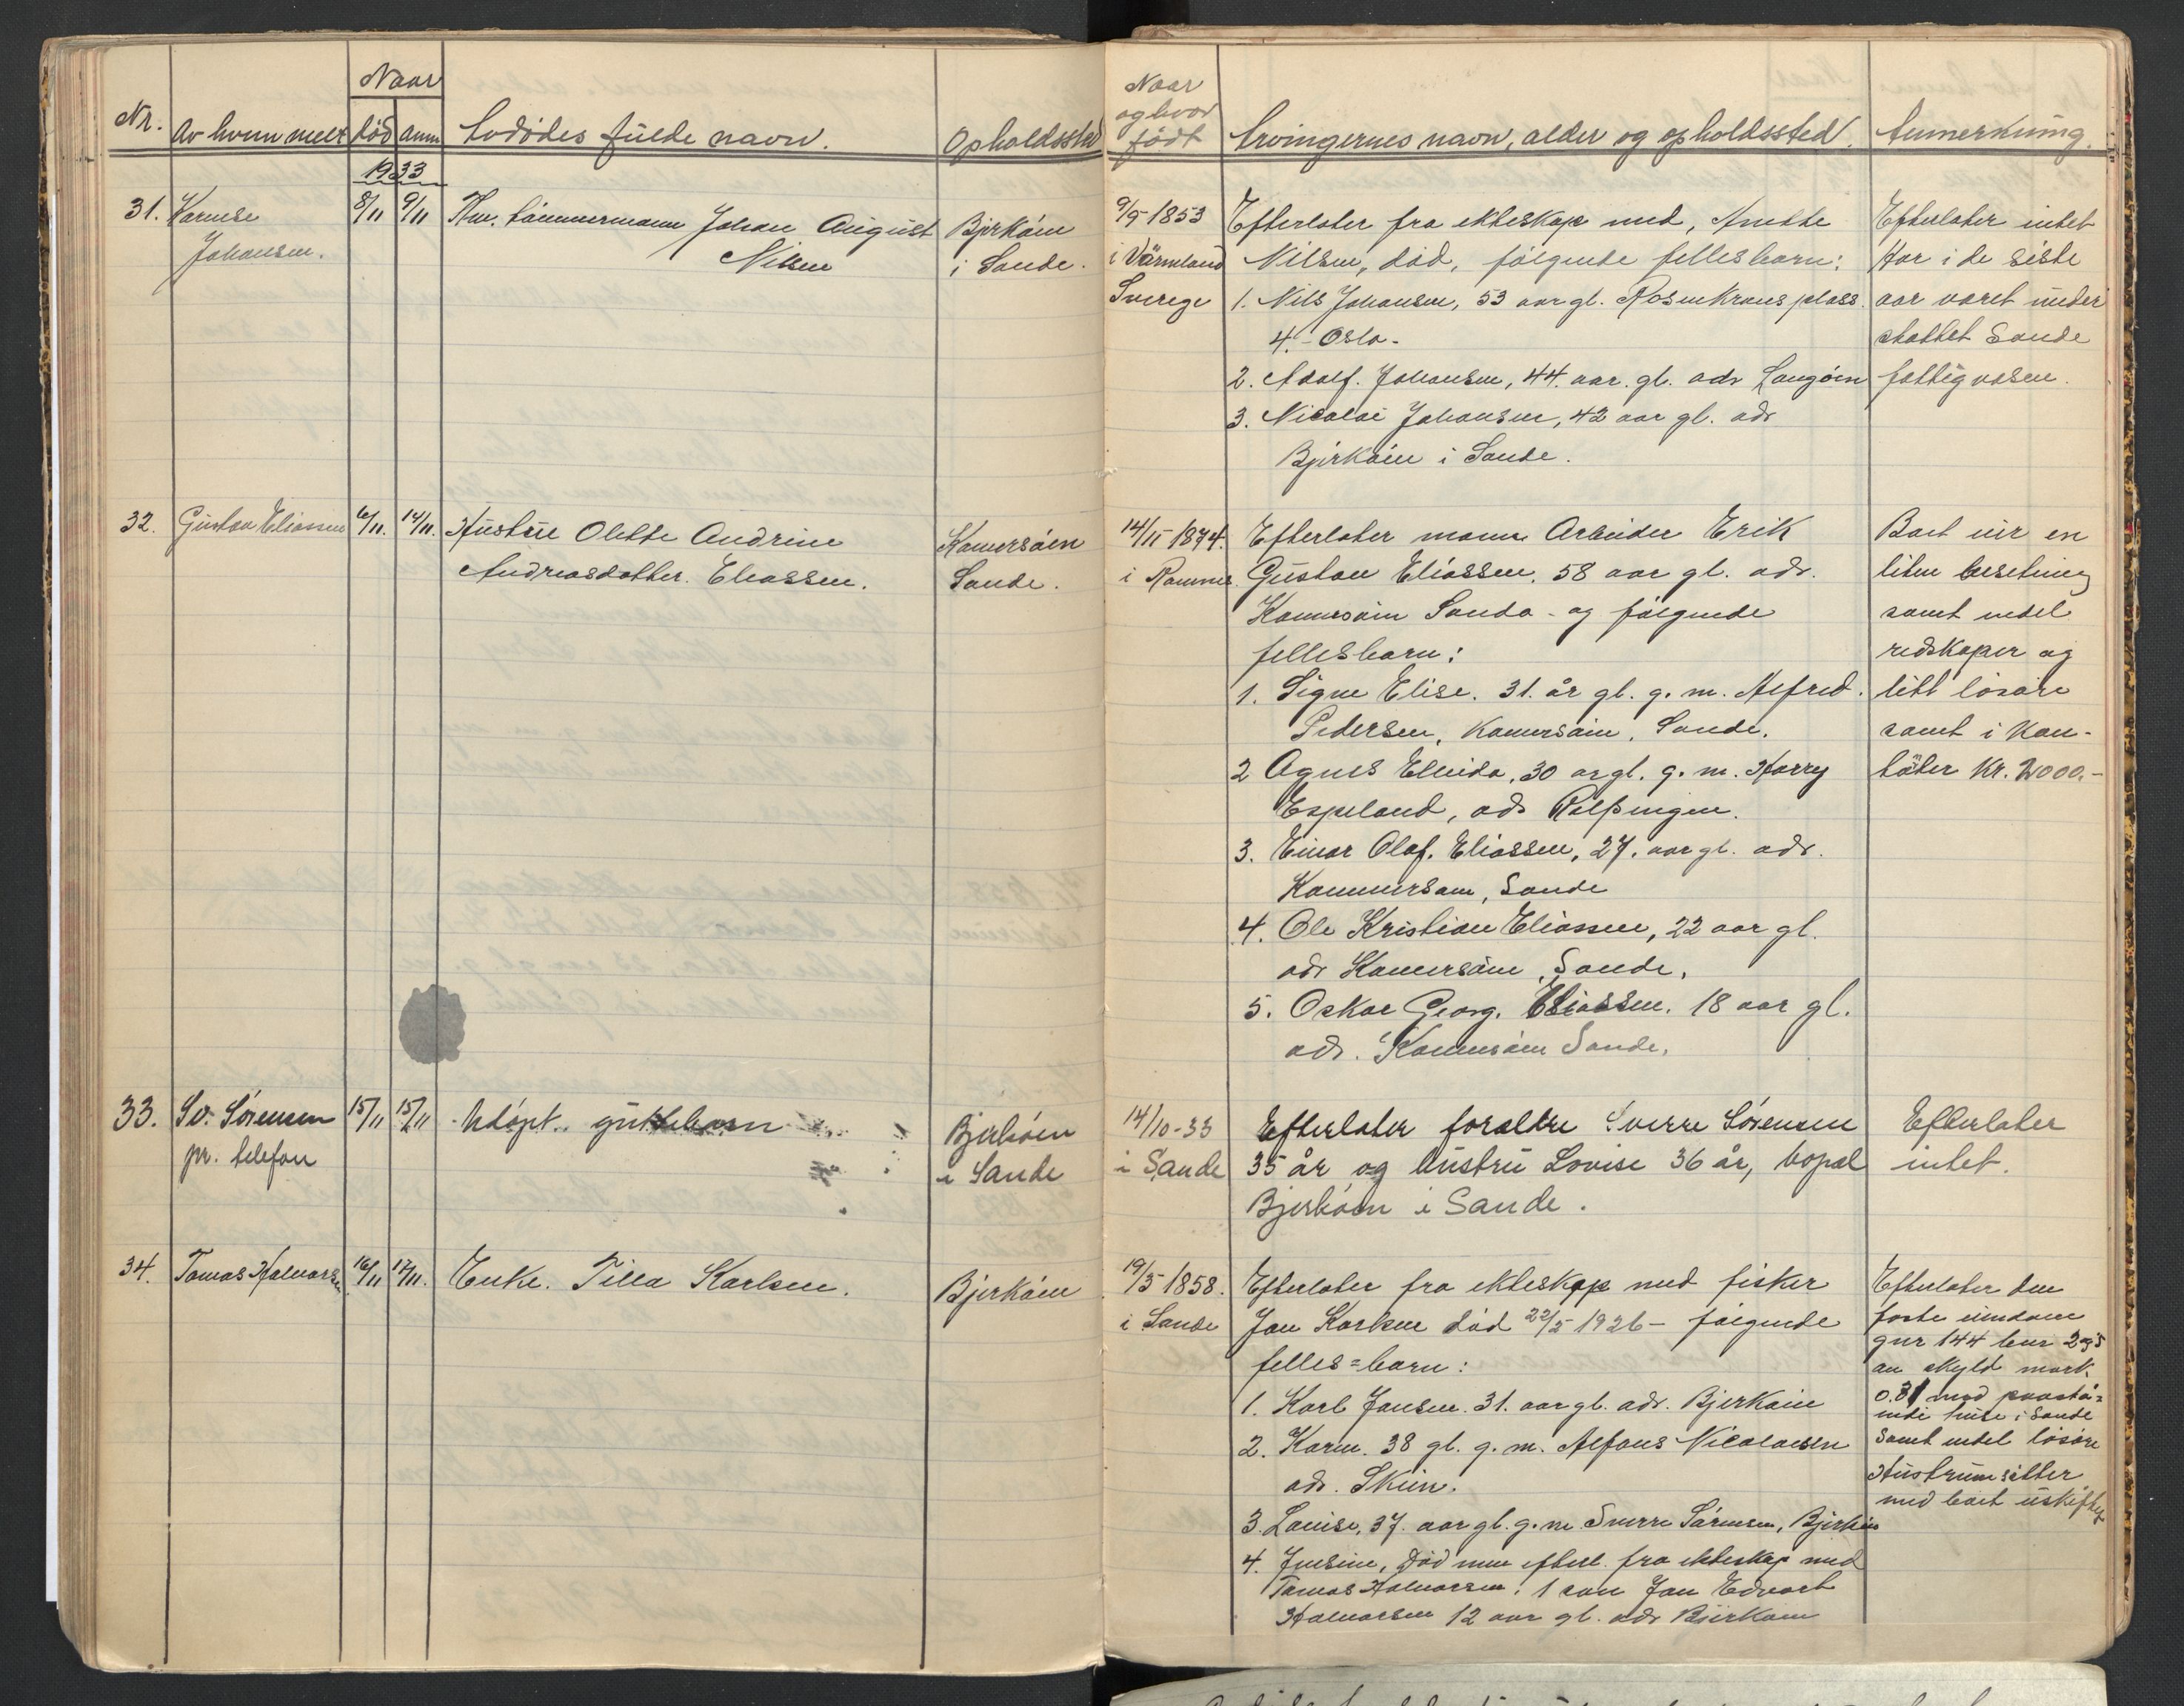 Naar
Nr. Av hvem melt død anm Avdødes fulde navn. Opholdssted
1933
31. Karense 8/11 9/11 Fhv. tømmermann Johan August Bjerkøen
Johansen. Nilsen i Sande.
32. Gustav Eliassen 6/11. 14/11. Hustru Olette Andrine Komersøen
Andreasdatter. Eliassen. Sande.
33. Sv. Sørensen 15/11 15/11 Udøpt guttebarn Bjerkøen
pr. telefon i Sande
34. Tomas Halvorsen 16/11 17/11. Enke. Tilla Karlsen. Bjerkøen
Naar
og hvor
født Arvingernes navn, alder og opholdssted. Anmerkning.
9/9-1853 Efterlater fra ekteskap med, Anette Efterlater intet
i Värmland Nilsen, død, følgende fellesbarn: Har i de siste
Sverige 1. Nils Johansen, 53 aar gl. Rosenkrans plass. aar varet under
4. - Oslo. støttet Sande
2. Adolf. Johansen, 44. aar. gl. adr Langøen fattigvesen.
3. Nicolai Johansen, 42 aar gl. adr
Bjerkøen i Sande.
14/11 1874. Efterlater mann Arbeider Erik Boet eier en
i Ramnes. Gustav Eliassen, 58 aar gl. adr. liten besetning
Komersøen Sande - og følgende samt endel
fellesbarn: redskaper og
1. Signe Elise. 31. år gl. g. m. Alfred. litt løsøre
Pedersen, Komersøen, Sande. samt i kon-
2 Agnes Elvida, 30 ar gl. g. m. Harry tanter Kr. 2000.-
Espeland, adr
3. Einar Olaf. Eliassen, 27. aar gl. adr.
Kommersøen, Sande
4. Ole Kristian Eliassen, 22 aar gl.
adr Komersøen, Sande.
5. Oskar Georg. Eliassen. 18 aar gl.
adr. Komersøen Sande.
14/10-33 Efterlater foreldre Sverre Sørensen Efterlater
i Sande 35 år og hustru Lovise 36 år, bopæl intet.
Bjerkøen i Sande.
19/5 1858. Efterlater fra ekteskap med fisker Efterlater den
i Sande Jan Karlsen død 22/5 1926 - følgende faste eiendom
felles=barn: gnr 144 bnr 2 og 5
1. Karl Jansen. 31. aar gl. adr. Bjerkøen av skyld mark.
2. Karen. 38 gl. g. m. Alfons Nicolaisen 0.31 med paastå=
adr. Skien. ende huse i Sande
3. Lovise, 37. aar gl. g. m. Sverre Sørensen, Bjerkøen samt endel løsøre
4. Jensine, død men efterl. fra ekteskap med Hustruen sitter
Tomas Halvorsen, 1 søn Jan Edvart med boet uskiftet
Halvorsen 12 aar gl. adr Bjerkøen